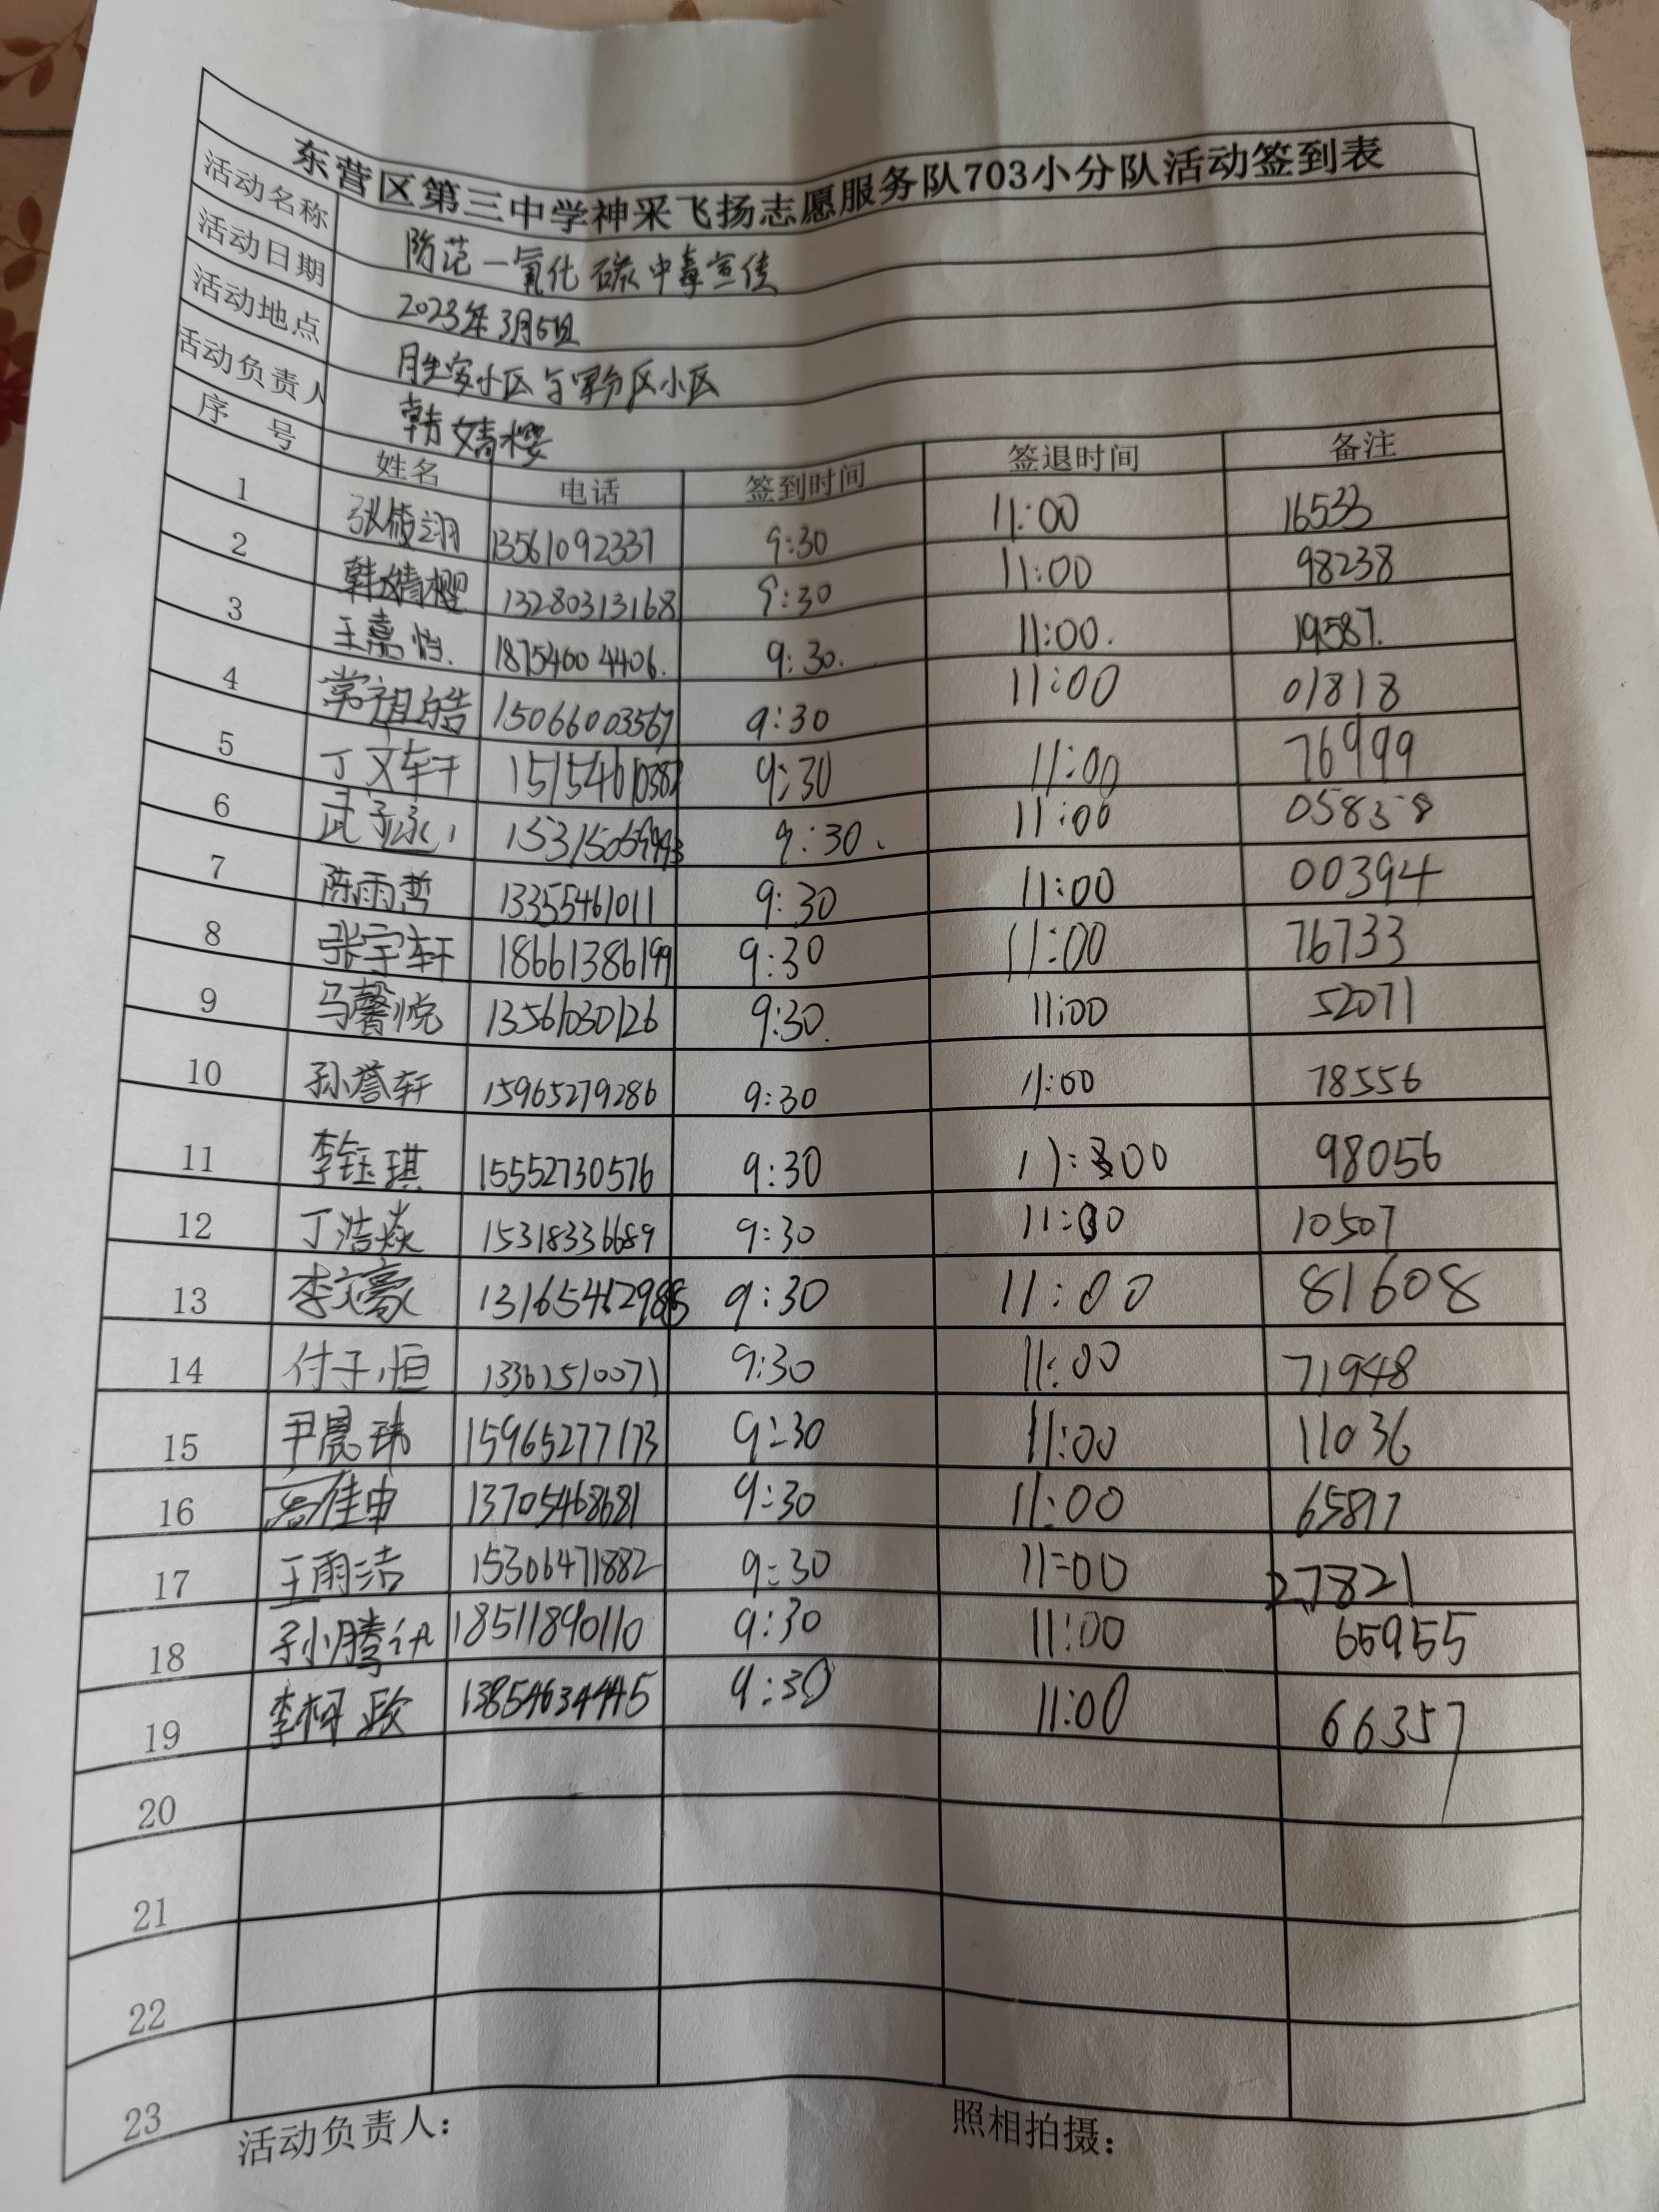 东营区第三中学神采飞扬志愿服务队703小分队活动签到表
活动名称 防范一氧化碳中毒宣传
活动日期 2023年3月5日
活动地点 胜安小区与军分区小区
活动负责人 韩婧樱
序号 姓名 电话 签到时间 签退时间 备注
1 张俊翊 13561092337 9:30 11:00 16533
2 韩婧樱 13280313168 9:30 11:00 98238
3 王嘉怡. 18754604406. 9:30. 11:00. 19587.
4 常祖皓 15066003567 9:30 11:00 01818
5 丁文轩 15154610382 9:30 11:00 76999
6 武子涵 9:30. 11:00 05838
7 陈雨哲 13355461011 9:30 11:00 00394
8 张宇轩 18661386199 9:30 11:00 76733
9 马馨悦 13561030126 9:30. 11:00 52071
10 孙誉轩 15965279286 9:30 11:00 78556
11 李钰琪 15552730576 9:30 11:00 98056
12 丁浩焱 15318336689 9:30 11:00 10507
13 李文豪 9:30 11:00 81608
14 付子恒 13361510071 9:30 11:00 71948
15 尹晨玮 15965277173 9:30 11:00 11036
16 高佳申 13705468681 9:30 11:00 65877
17 王雨洁 15306471882 9:30 11:00 27821
18 孙腾 18511890110 9:30 11:00 65955
19 李柯 13854634445 9:30 11:00 66357
20
21
22
23
活动负责人： 照相拍摄：